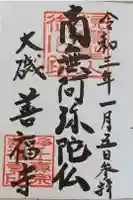 令和三年一月五日参拝
南無阿弥陀仏
大磯 善福寺